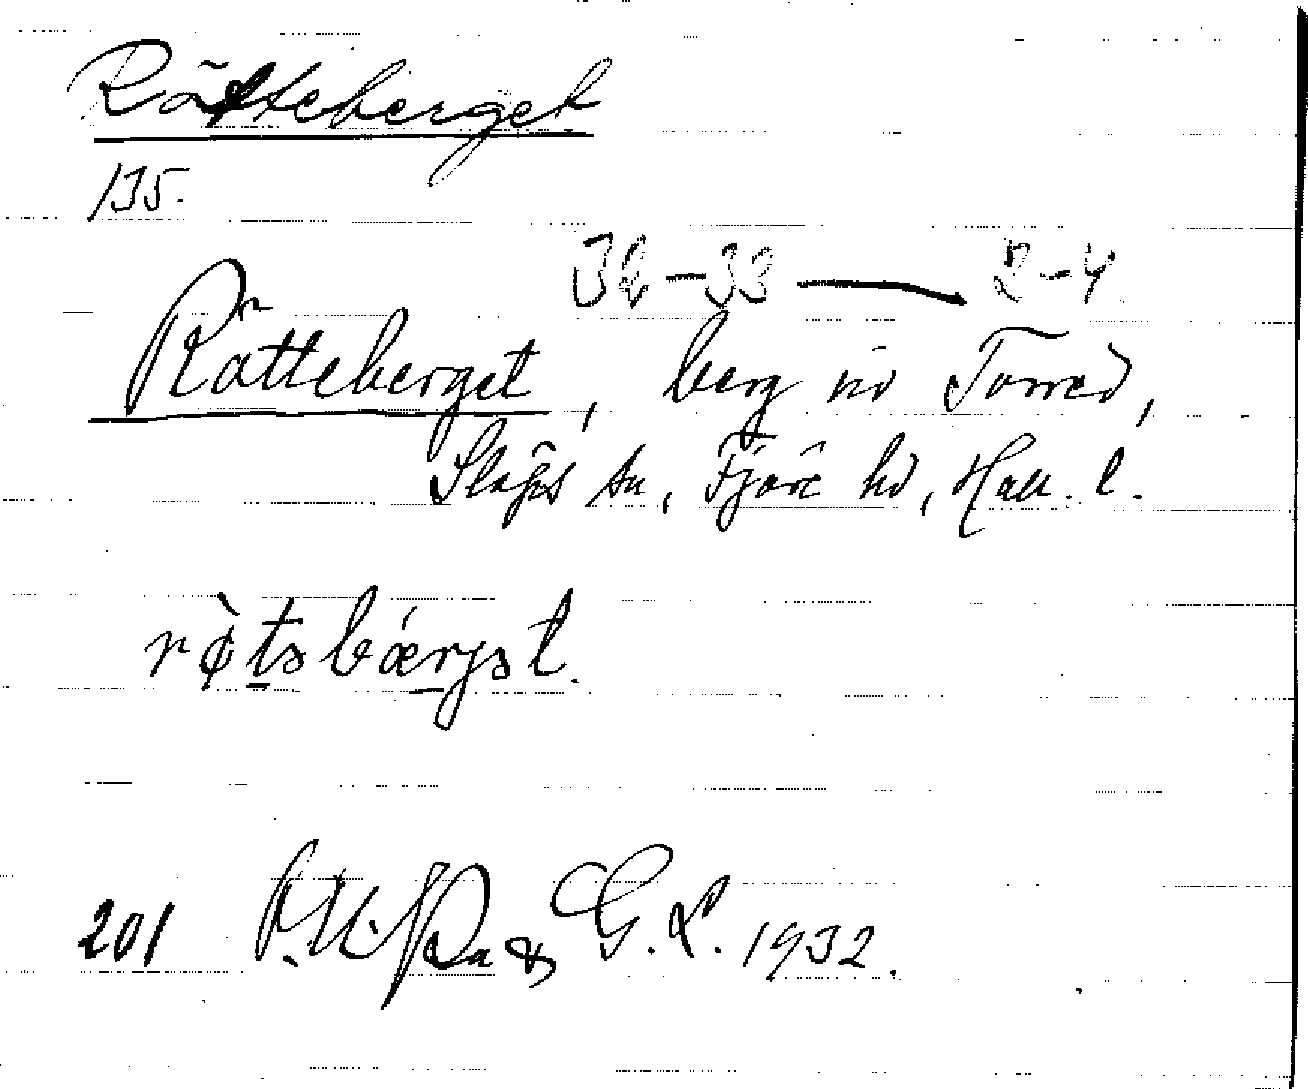 Rötteberget
135.
32-33 — 2-4
Rötteberget, berg vid Torred,
Släps sn, Fjäre hd, Hall. l.
rø̀təbǽrjət.
201 & G. L. 1932.